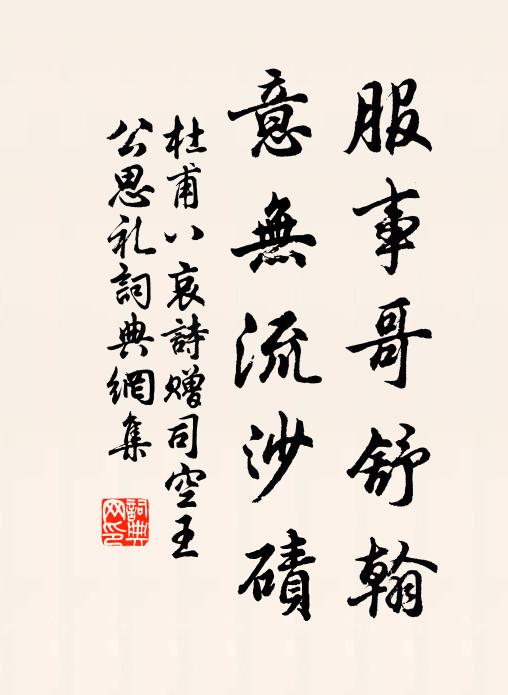 服事哥舒翰
意無流沙磧
杜甫八哀詩赠司空王
公思礼詞典網集
詞典
网印